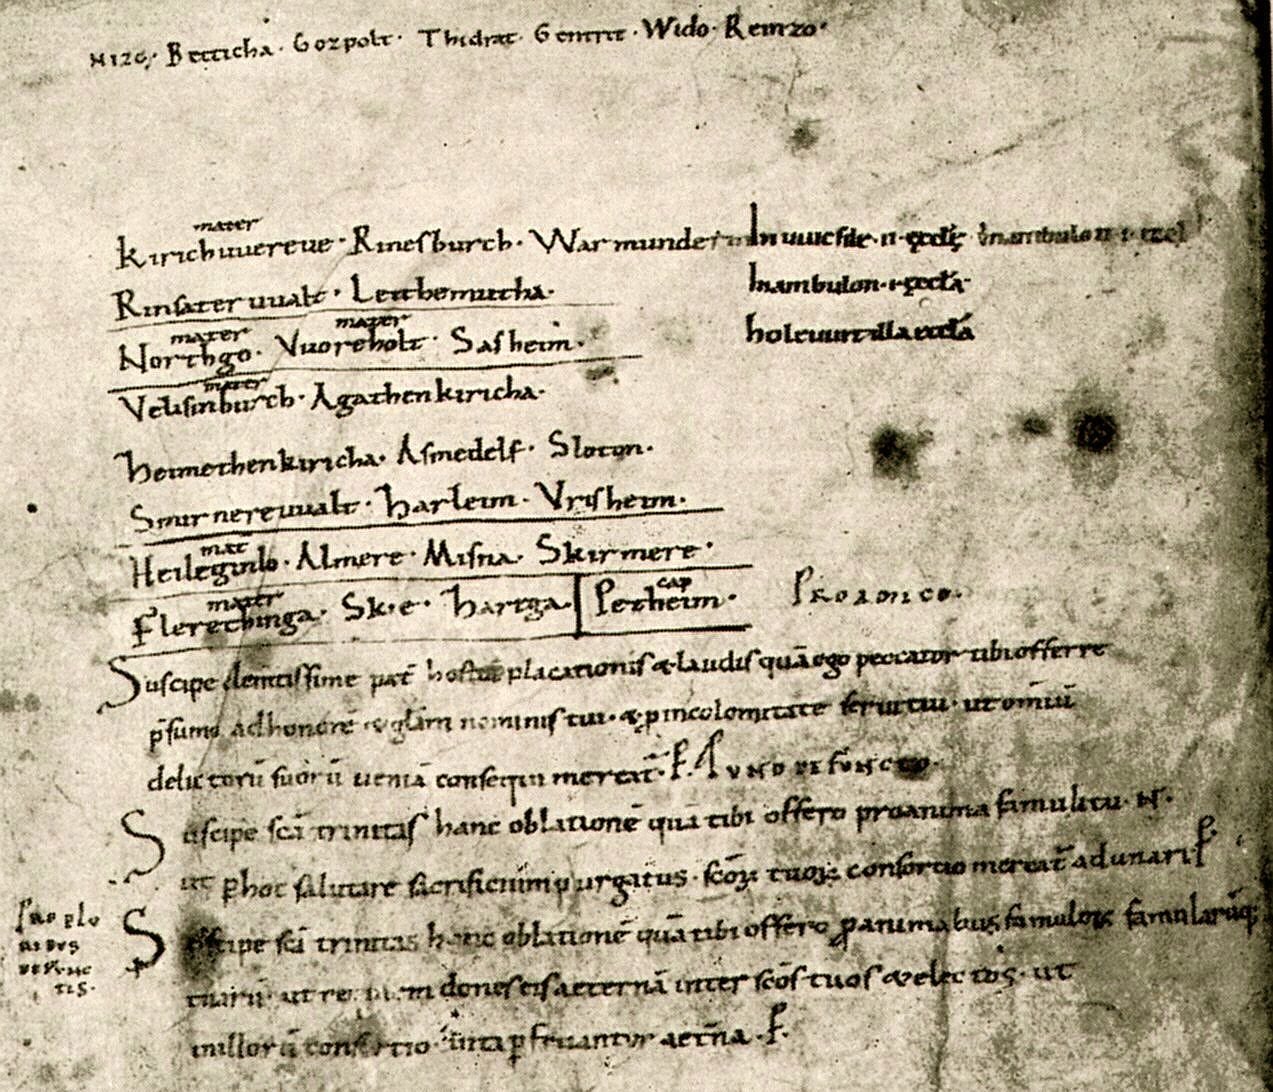 Nizo· Betticha· Gozpolt· Thidrat· Gentrit· Wido· Reinzo·
mater
kirichuuereue· Rinesburch· Warmunde
In uuicfile·ii·ęccłę
Rinsateruualt· Letthemutha·
Inambulon·i·ęccła·
mater mater
Northgo· Vuoreholt· Sasheim·
holtuuttilla eccła
mater
Velisinburch· Agathenkiricha·
heimethenkiricha· Asmedelf· Sloton·
Smirnereuualt· harleim· Vrisheim·
mat
Heileginlo· Almere· Misna· Skirmere·
mater cap
Flerethinga· Sk·e· hartga· Petheim·
Suscipe clemtissime pat̄ hostiā placationis & laudis quā ego peccator tibi offerre
p̄sumo ad honorē & glām nominis tui· & ꝑ incolomitate serui tui· ut omīū
delictorū suorū ueniā consequi mereat̄· P̄· P uno defuncto·
Suscipe scā trinitas hanc oblationē quā tibi offero pro anima famuli tui· N·
ut ꝑ hoc salutare sacrificium purgatus· scōꝝ tuoꝝ consortio mereat̄ adunari P̄
Pro plu
ribus
defunc
tis·
Suscipe scā trinitas hanc oblationē quā tibi offero ꝓ animabus famuloꝝ famularūq;
tuarū· ut re m dones eis aeternā inter scōs tuos & electos· ut
in illorū consortio uita ꝑfruantur aet̄na· P̄·